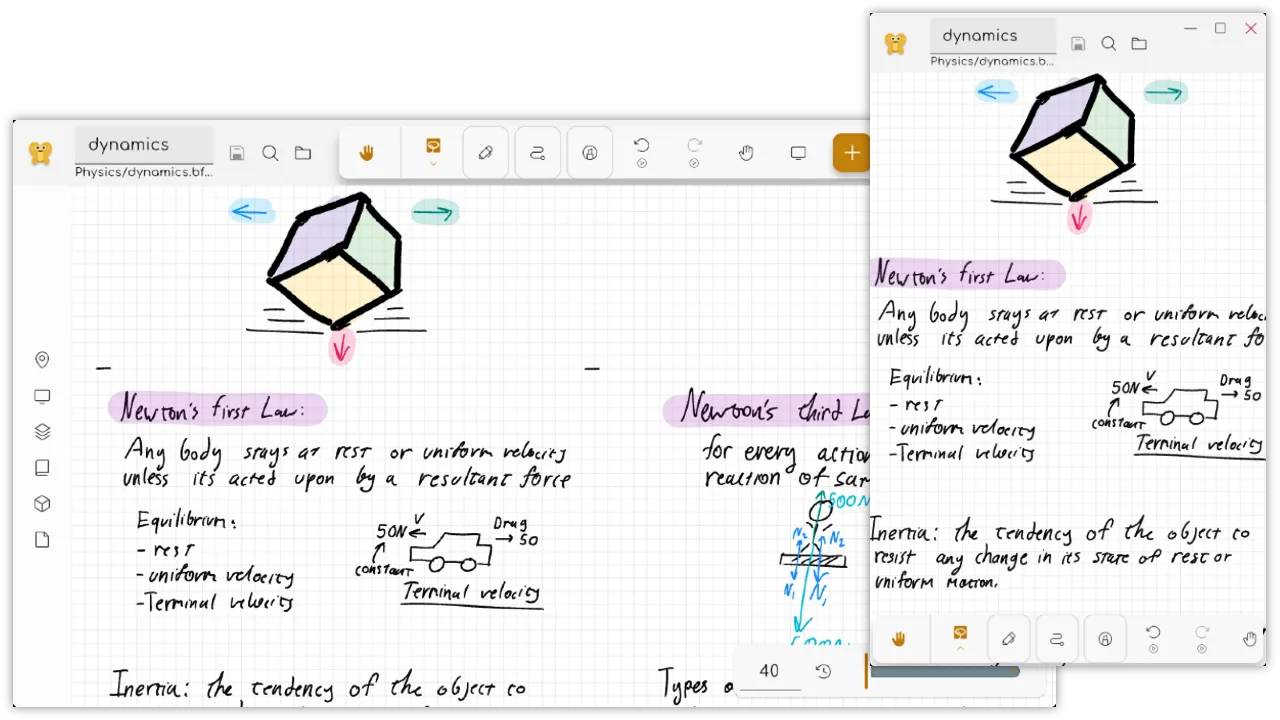 dynamics
Physics/dynamics.bf...
Newton's first Law:
Any body stays at rest or uniform velocity
unless its acted upon by a resultant force
Equilibrium:
- rest
- uniform velocity
- Terminal velocity
V
50N
constant
Drag
50
Terminal velocity
Inertia: the tendency of the object to
Newton's third La
for every action
reaction of sam
600N
N2
N2
N1
N1
Types o
40
dynamics
Physics/dynamics.b...
Newton's first Law:
Any body stays at rest or uniform veloc
unless its acted upon by a resultant fo
Equilibrium:
- rest
- uniform velocity
- Terminal velocity
V
50N
constant
Drag
50
Terminal velocity
Inertia: the tendency of the object to
resist any change in its state of rest or
uniform motion.